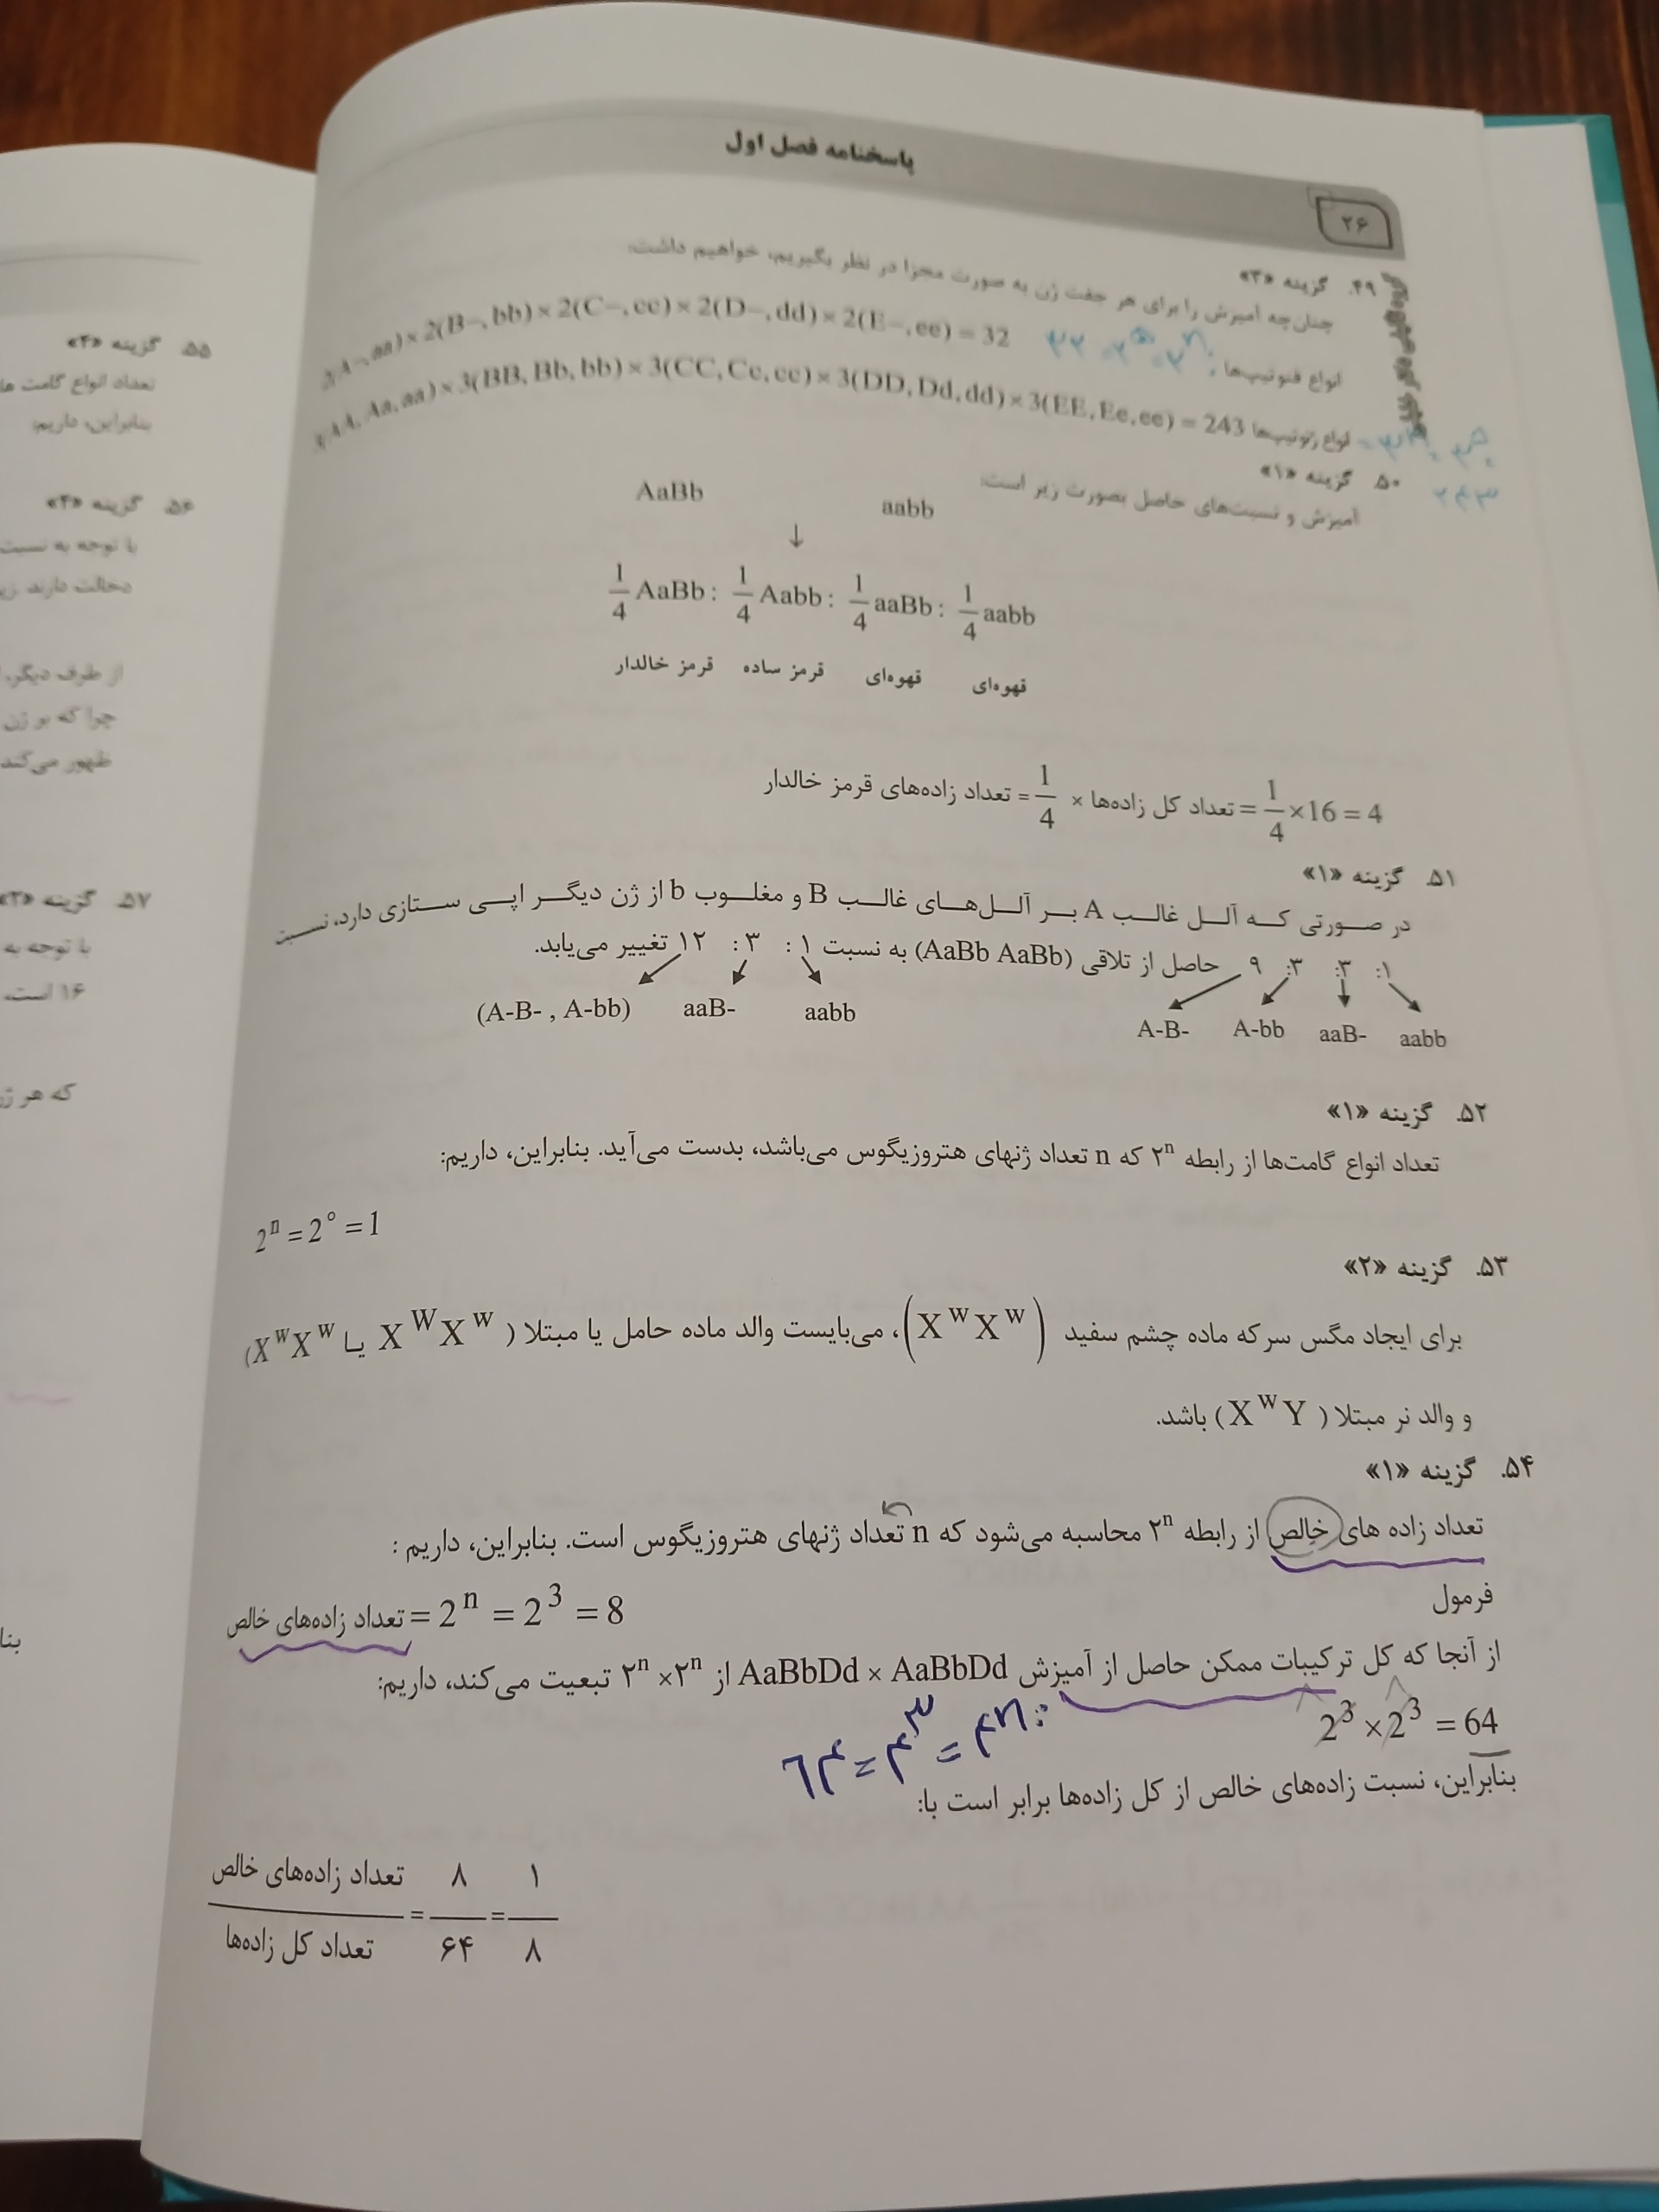 پاسخنامه فصل اول
۲۶
۴۹. گزینه «۳»
چنان‌چه آمیزش را برای هر جفت ژن به صورت مجزا در نظر بگیریم، خواهیم داشت:
انواع فنوتیپ‌ها 2(A-, aa) × 2(B-, bb) × 2(C-, cc) × 2(D-, dd) × 2(E-, ee) = 32
انواع ژنوتیپ‌ها 3(AA, Aa, aa) × 3(BB, Bb, bb) × 3(CC, Cc, cc) × 3(DD, Dd, dd) × 3(EE, Ee, ee) = 243
۵۰. گزینه «۱»
آمیزش و نسبت‌های حاصل بصورت زیر است:
AaBb aabb
↓
1/4 AaBb : 1/4 Aabb : 1/4 aaBb : 1/4 aabb
قرمز خالدار قرمز ساده قهوه‌ای قهوه‌ای
تعداد زاده‌های قرمز خالدار = 1/4 × تعداد کل زاده‌ها = 1/4 × 16 = 4
۵۱. گزینه «۱»
در صورتی که آلل غالب A بر آلل‌های غالب B و مغلوب b از ژن دیگر اپی ستازی دارد، نسبت
۹ :۳ :۳ :۱ حاصل از تلاقی (AaBb AaBb) به نسبت ۱۲ :۳ :۱ تغییر می‌یابد.
A-B- A-bb aaB- aabb (A-B- , A-bb) aaB- aabb
۵۲. گزینه «۱»
تعداد انواع گامت‌ها از رابطه ۲ⁿ که n تعداد ژنهای هتروزیگوس می‌باشد، بدست می‌آید. بنابراین، داریم:
2ⁿ = 2° = 1
۵۳. گزینه «۲»
برای ایجاد مگس سرکه ماده چشم سفید (XʷXʷ)، می‌بایست والد ماده حامل یا مبتلا (XᵂXʷ یا XʷXʷ)
و والد نر مبتلا (XʷY) باشد.
۵۴. گزینه «۱»
تعداد زاده های خالص از رابطه ۲ⁿ محاسبه می‌شود که n تعداد ژنهای هتروزیگوس است. بنابراین، داریم :
فرمول
تعداد زاده‌های خالص = 2ⁿ = 2³ = 8
از آنجا که کل ترکیبات ممکن حاصل از آمیزش AaBbDd × AaBbDd از ۲ⁿ×۲ⁿ تبعیت می‌کند، داریم:
2³ × 2³ = 64
۴ⁿ = ۴³ = ۶۴
بنابراین، نسبت زاده‌های خالص از کل زاده‌ها برابر است با:
تعداد زاده‌های خالص ۸ ۱
= =
تعداد کل زاده‌ها ۶۴ ۸
۵۵. گزینه «۲»
تعداد انواع گامت ها
بنابراین، داریم:
۵۶. گزینه «۴»
با توجه به نسبت
دخالت دارند
از طرف دیگر،
چرا که بو ژن
ظهور می‌کند
۵۷. گزینه
با توجه به
۱۶ است،
که هر
بنا